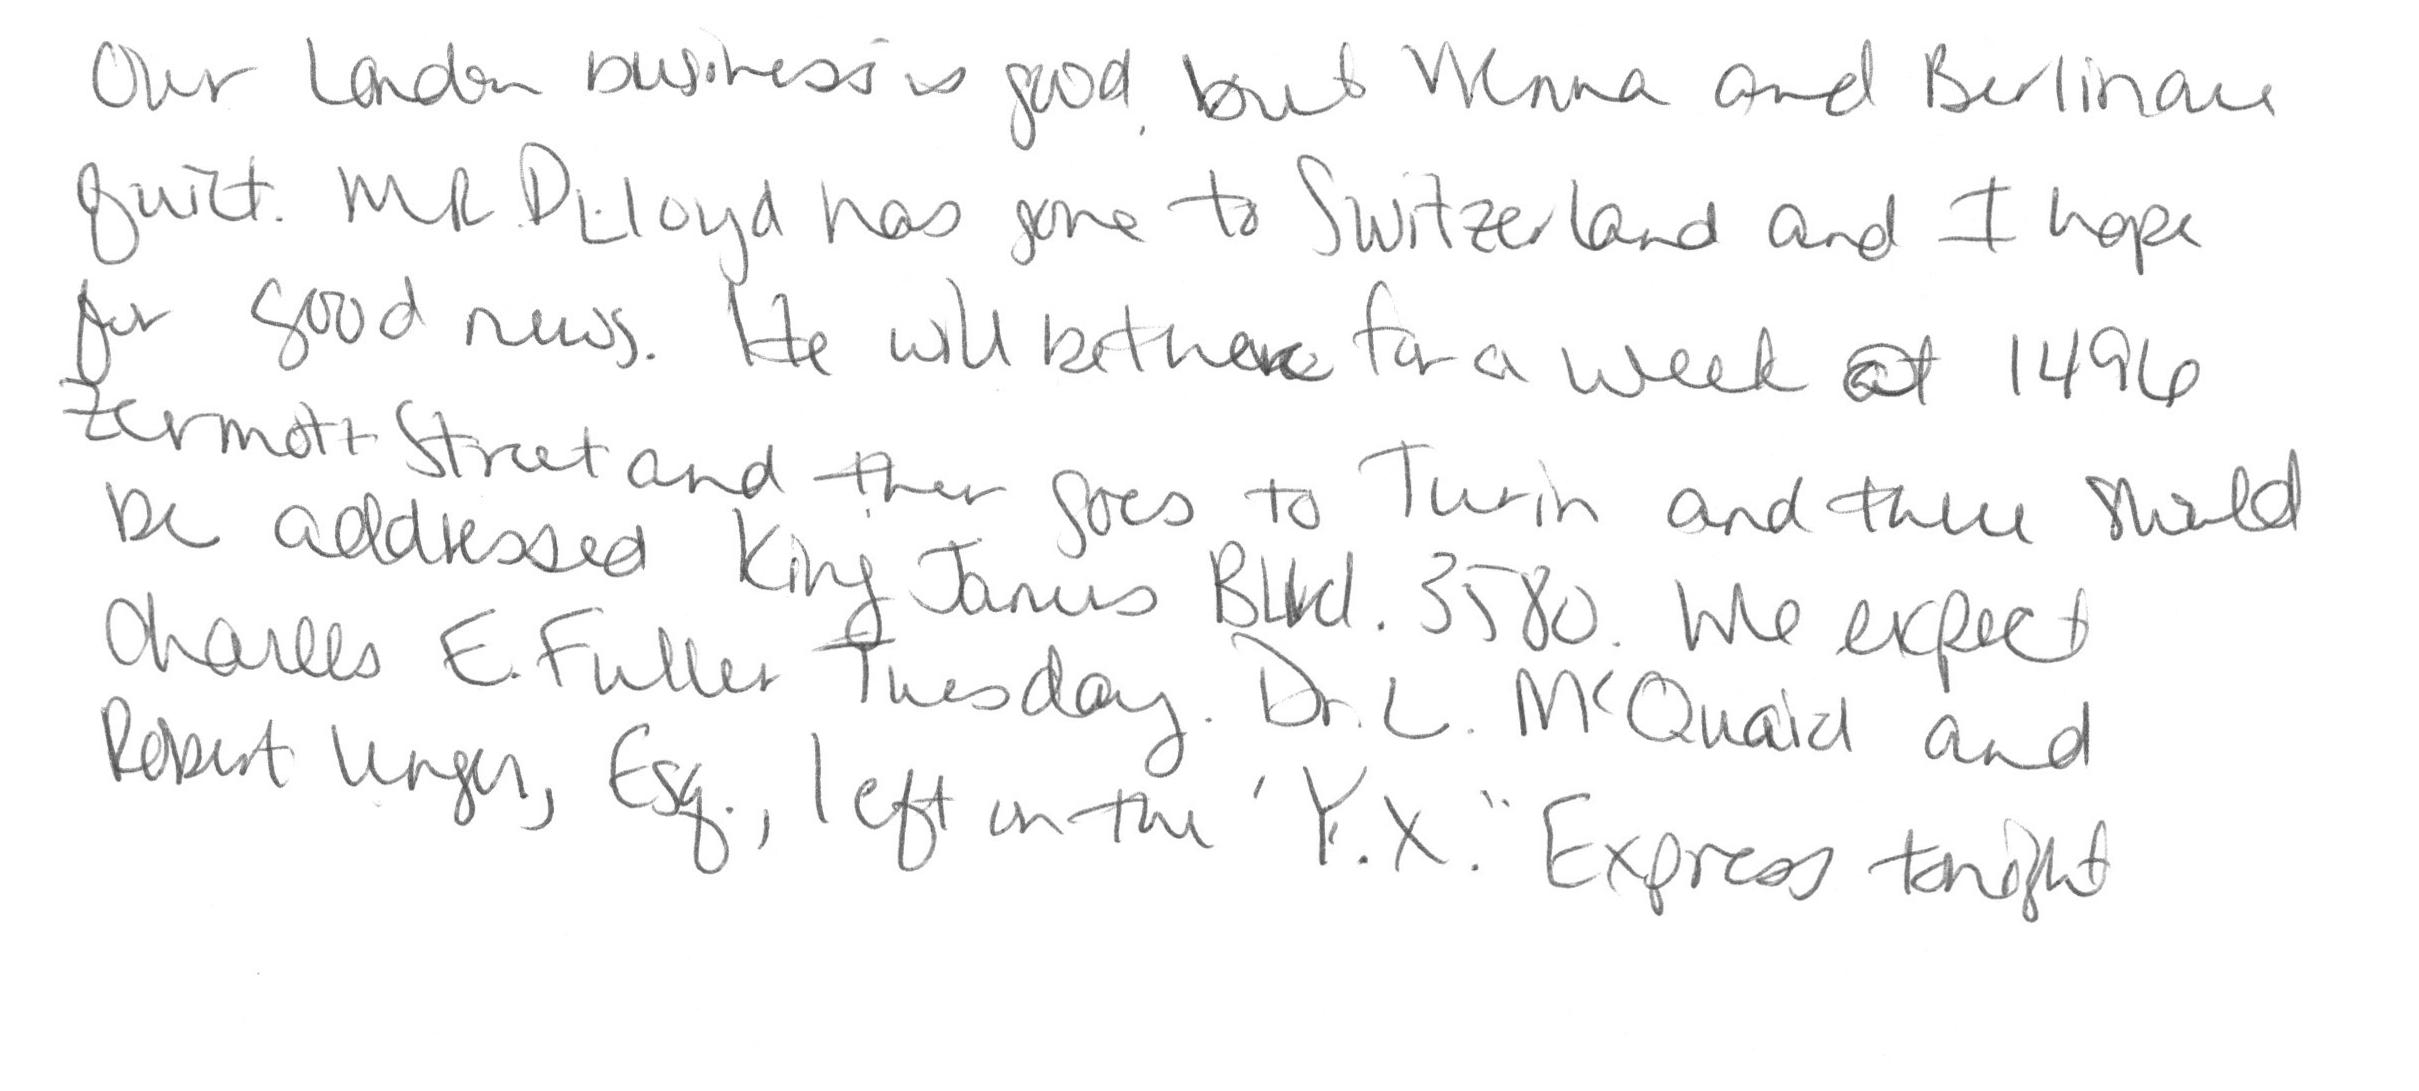 Our London business is good, but Vienna and Berlin are
quiet. Mr. D. Lloyd has gone to Switzerland and I hope
for good news. He will be there for a week at 1496
Zermott Street and then goes to Turin and there should
be addressed King James Blvd. 3580. We expect
Charles E. Fuller Tuesday. Dr. L. McQuaid and
Robert Unger, Esq., left on the "Y.X." Express tonight